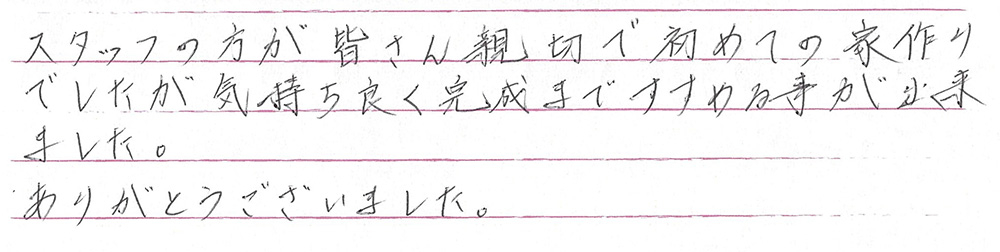 スタッフの方が皆さん親切で初めての家作り
でしたが気持ち良く完成まですすめる事が出来
ました。
ありがとうございました。